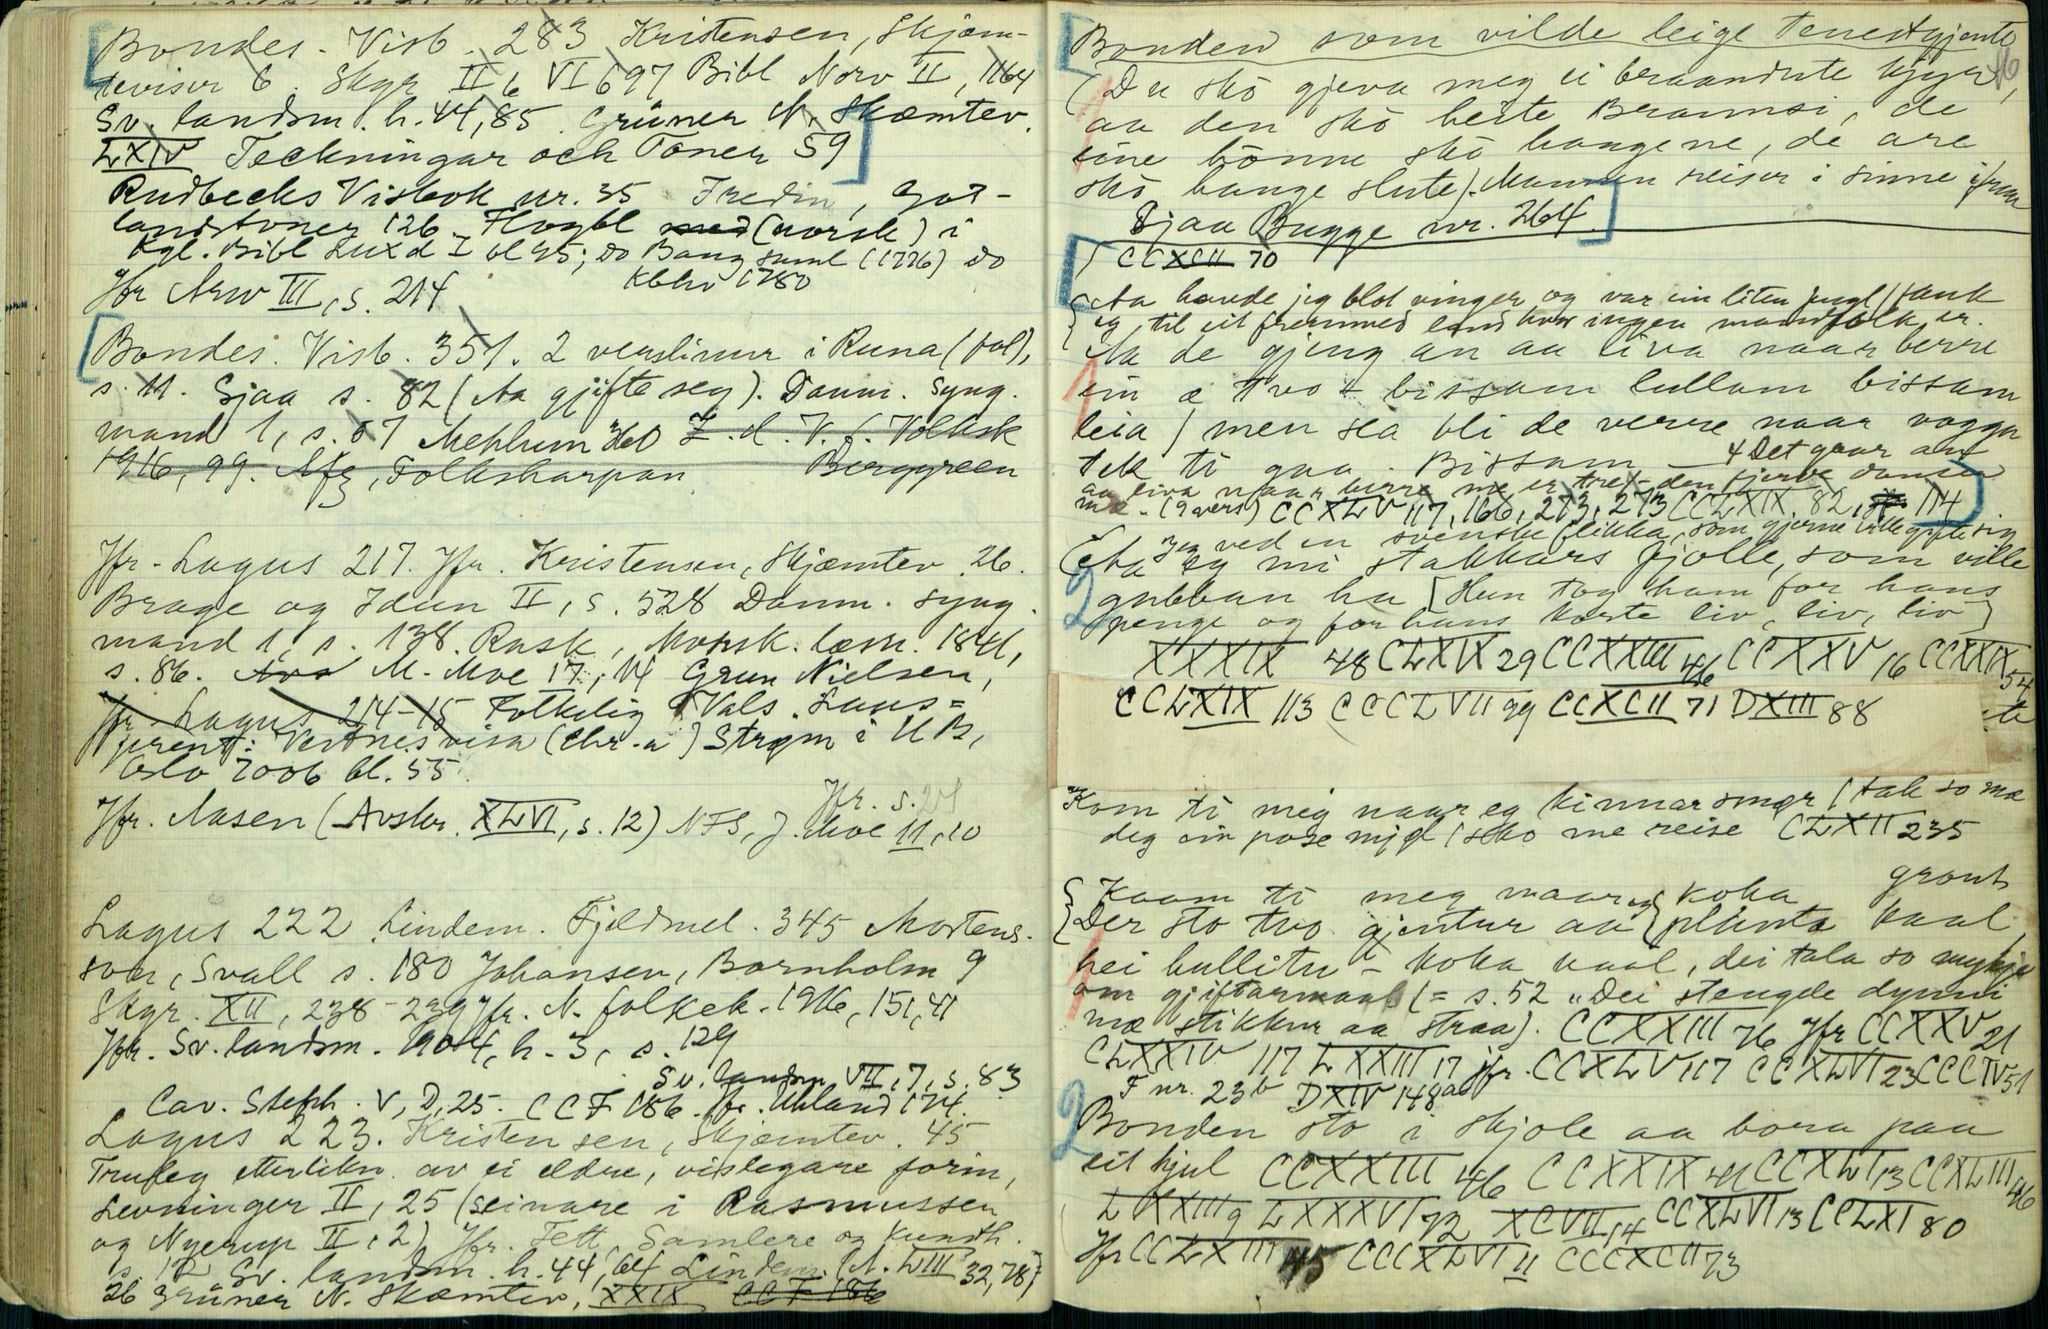 Bondes. Visb. 283 Kristensen, Skjæm-
teviser 6. Skgr. II 6 VI 697 Bibl Norv II, 1164
Sv. landsm. h. 44, 85. Grüner N. Skæmtev.
LXIV Teckningar och Toner 59
Rudbecks Visbok nr. 35 Fredin, Got-
landstoner 126. Flogbl (norsk) i
Kgl. Bibl Luxd I bl 25; do Bang saml (1776) do
Kbhv 1780
Jfr Arw III, s. 214
Bondes. Visb. 351. 2 verslinur i Runa (fol),
s. 11. Sjaa s. 82 (Aa gjifte seg). Danm. Syng.
mand 1, s. 57 Mehlum Z. d. V. f. Volksk
1916, 99. Afz, Folksharpan Berggreen
Jfr. Lagus 217. Jfr. Kristensen, Skjæmtev. 26.
Brage og Idun II, s. 528 Danm. syng.
mand 1, s. 138. Rask, Morsk. læsn. 1841,
s. 86. M. Moe 17, 14 Grun Nielsen,
Jfr. Lagus 214-15 Folkelig Vals. Laus=
prent: Vestnesvisa (Chr.a) Strøm i UB,
Oslo 7006 bl. 55.
Jfr. s. 21
Jfr. Aasen (Avskr. XLVI, s. 12) NFS, J. Moe 11, 10
Lagus 222 Lindem. Fjeldmel. 345 Mortens-
son, Svall s. 180 Johansen, Bornholm 9
Skgr. XII, 238-239 Jfr. N. folkek. 1916, 151, 41
Jfr. Sv. landsm. 1904, h. 3, s. 129
Sv. landsm VII, 7, s. 83
Cav. Steph. V, D, 25. CCF 186. Jfr. Uhland 174.
Lagus 223. Kristensen, Skjæmtev. 45
Truleg etterlikn. av ei eldre, vislegare form,
Levninger II, 25 (seinare i Rasmussen
og Nyerup II, 2) Jfr. Fett, Samlere og Kundh.
s. 12 Sv. landsm. h. 44, 64 Lindem. (N. LIII 32, 78)
26 Grüner N. Skæmtev. XXIX CCF 186
Bonden som vilde leige tenestgjente
(Du sko gjeva meg ei braandute kyyr,
aa den sko heite Brannsi, de
eine hønne sko hangene, de are
sko hange slute). Mannen reiser i sinne ifraa
Sjaa Bugge nr. 264.
CCXCII 70
Aa havde jeg blot vinger og var ein liten fugl
eg til eit fremmed land hvor ingen mandfolk er.
Aa de gjeng an aa liva naar berre
ein æ tvo - bissam lullam bissam
leia / men sea bli de verre naar vogga
tek ti gaa. Bissam — 4 Det gaar an
aa liva naar berre me er tre - den fjerde danse
mæ - (9 vers) CCXLV 117, 166, 273, 273 CCLXIX. 82, 114
Jeg ved en svenske flikka, som gjerne ville gifte sig
(Aa eg mi stakkars fjolle, som ville
gubban ha [Hun tog ham for hans
penge og for hans korte liv, liv, liv]
XXXIX 48 CLXIX 29 CCXXIII 46 CCXXV 16 CCXXIX 54
CCLXIX 113 CCCLVII 99 CCXCII 71 DXIII 88
Kom ti meg naar eg kinnar smør / tak so mæ
deg ein pose mjøl / sko me reise CLXII 235
Kaam ti meg naar eg koka graut
Der sto tvo gjentur aa planta kaal
hei hullitu - koka kaal, dei tala so mykje
om gjiftarmaal (= s. 52 "Dei stengde dynni
mæ stikkur aa straa). CCXXIII 76 Jfr CCXXV 21
CLXXIV 117 LXXIII 17 jfr. CCXLV 117 CCXLVI 23 CCCIV 51
F nr. 23b DXIV 148
Bonden sto i skjole aa bora paa
eit hjul CCXXIII 46 CCXXIX 41 CCXLI 13 CCXLIII 46
LXXIII 9 LXXXVI 72 XCVII 14 CCXLVI 13 CCLXI 80
Jfr CCLXIII 45 CCCXLVI 11 CCCXCII 73